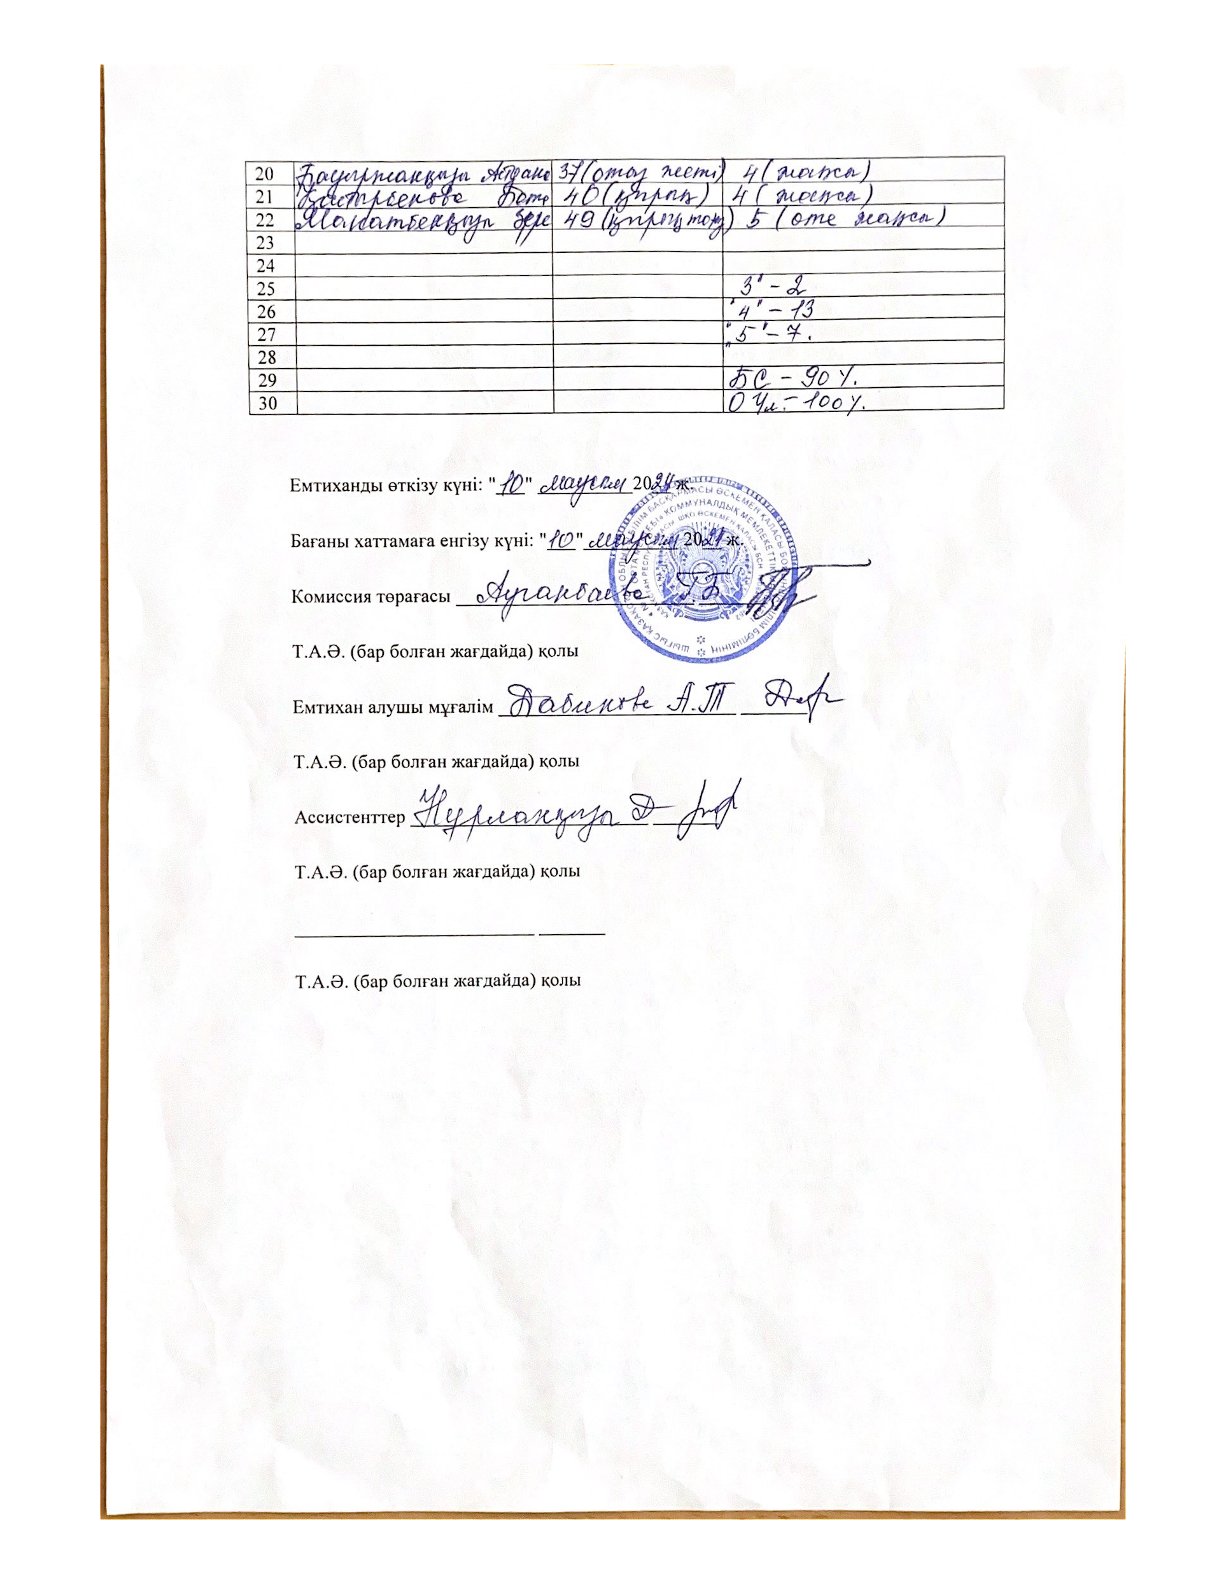 20 Бауыржанқызы Айдана 37 (отыз жеті) 4 (жақсы)
21 Бекірбекова Бота 40 (қырық) 4 (жақсы)
22 Манатбекқызы 49 (қырық тоғ) 5 (өте жақсы)
23
24
25 3" - 2
26 "4" - 13
27 "5" - 7.
28
29 БС - 90%.
30 О Үл. - 100%.
Емтиханды өткізу күні: "10" маусым 2024 ж.
Бағаны хаттамаға енгізу күні: "10" маусым 2024 ж.
Комиссия төрағасы Ауганбаева Г.Б
Т.А.Ә. (бар болған жағдайда) қолы
Емтихан алушы мұғалім Дабинова А.Т
Т.А.Ә. (бар болған жағдайда) қолы
Ассистенттер Нұрланқызы Д
Т.А.Ә. (бар болған жағдайда) қолы
Т.А.Ә. (бар болған жағдайда) қолы